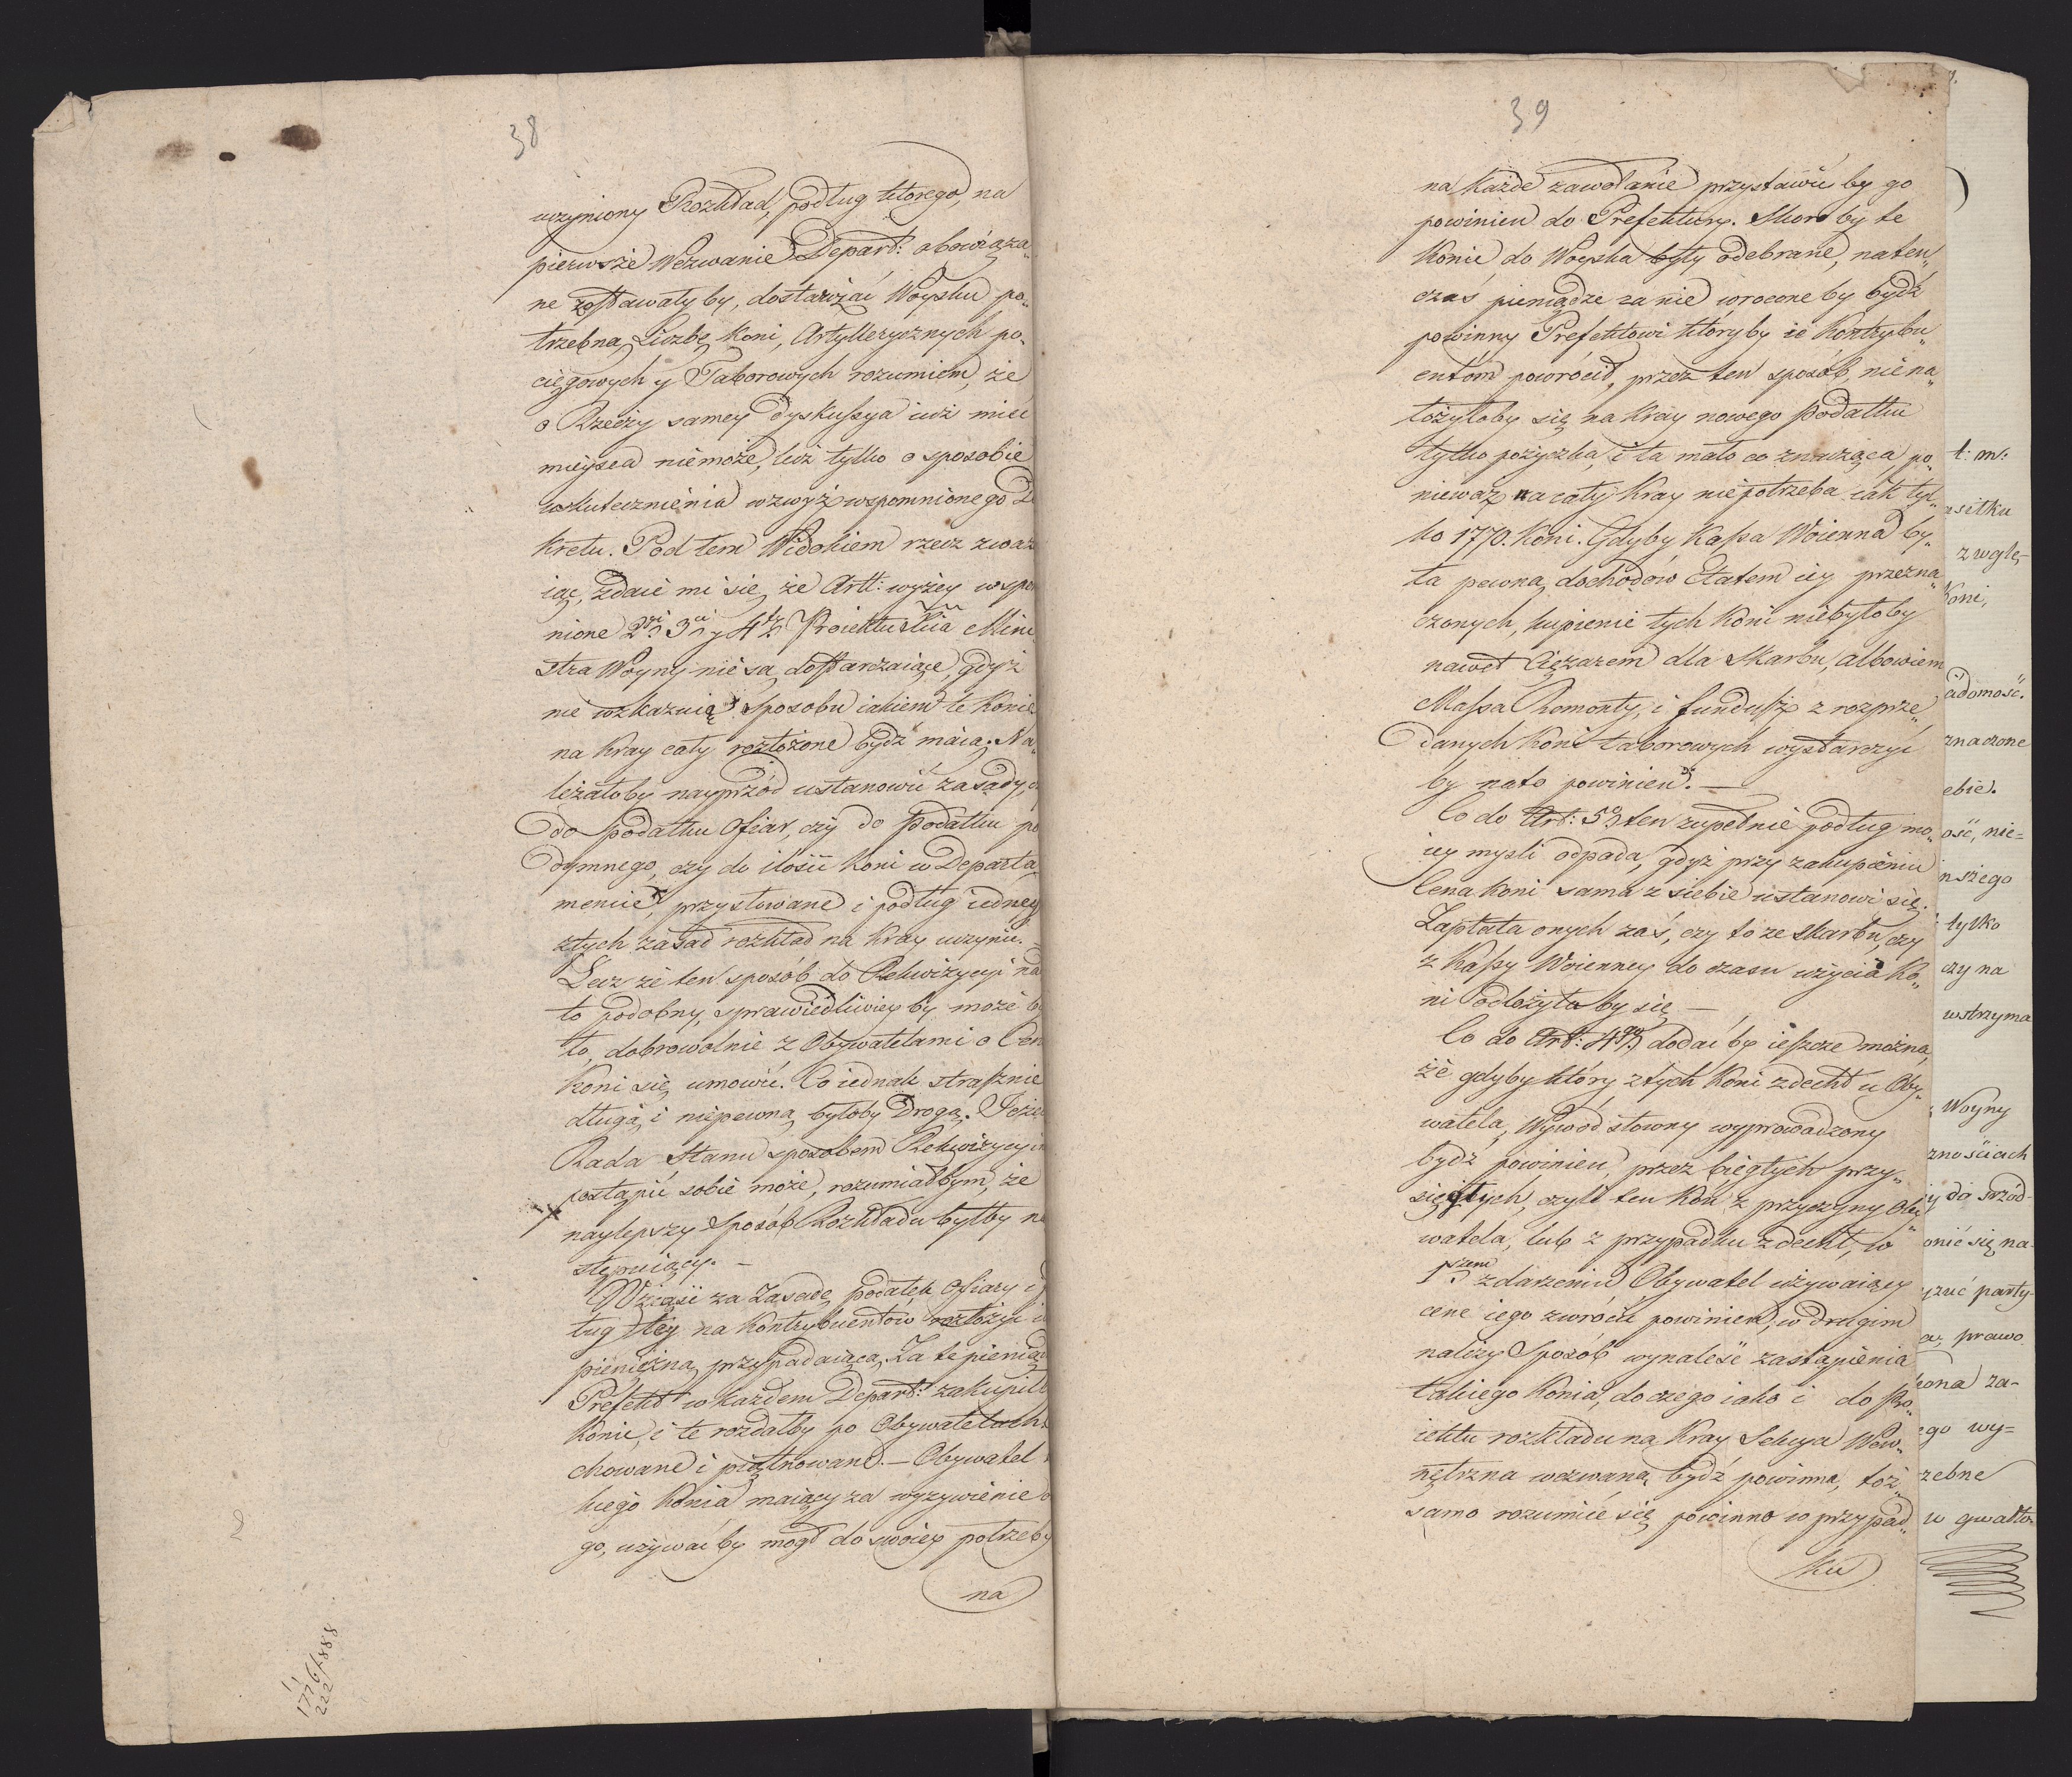 38
uczyniony Rozkład, podług ktorego, na
pierwsze Wezwanie Depart: obowiąza„
ne zostawały by, dostawiać Woysku po„
trzebną Liczbę Koni, Artyllerycznych po„
ciągowych y Taborowych rozumiem, że
o Rzeczy samey Dyskussya iuż mieć
mieysca niemoże, lecz tylko o sposobie
uskutecznienia wzwyż wspomnionego De
kretu. Pod tem Widokiem rzecz zważa
iąc, zdaie mi się, że Artt: wyżey wspom
nione 2gi 3ci y 4ty Proiektu Xcia Mini
stra Woyny nie są dostarczaiące, gdyż
nie wskazuią Sposobu iakiem te Konie
na Kray cały rozłożone bydź maią. Na„
leżałoby nayprzód ustanowić zasady, cz
do Podatku Ofiar, czy do Podatku po
dymnego, czy do ilości Koni w Departa
mencie, przystowane i podług iedney
z tych zasad rozkład na Kray uczynić. –
Lecz że ten sposób do Rekwizycyi na
to podobny, sprawiedliwiey by może by
ło, dobrowolnie z Obywatelami o Cenę
Koni się umowić. Co iednak strasznie
długą i niepewną byłoby Drogą. Jeże
Rada Stanu sposobem Rekwizycyi
postąpić sobie może, rozumiałbym, że
naylepszy Sposób Rozkładu byłby na
stępuiący. –
Wziąść za Zasadę podatek Ofiary i
ług tey na Kontrybuentów rozłożyć i
pieniężną przypadaiącą. Za te pieniąd
Prefekt w każdem Depart: zakupił
Konie, i te rozdałby po Obywatelach
chowane i piątnowane. – Obywatel
kiego Konia maiący za wyżywienie
go, używać by mógł do swoiey potrzeby
na
1776/888
222
39
na każde zawołanie przystawić by go
powinien do Prefektury. Skoro by te
Konie do Woyska były odebrane, naten„
czas pieniądze za nie wrocone by bydź
powinny Prefektowi który by ie Kontrybu„
entom powrócił, przez ten sposób niena„
łożyłoby się na Kray nowego Podatku
tylko pożyczka, i ta mało co znacząca, po„
nieważ na cały Kray nie potrzeba iak tyl„
ko 1770. Koni. Gdyby Kassa Woienna by„
ła pewną dochodów Etatem iey przezna„
czonych, kupienie tych Koni niebyłoby
nawet Ciężarem dla Skarbu, albowiem
Massa Remonty, i fundusz z rozprze„
danych Koni taborowych wystarczyć
by na to powinien. –
Co do Art: 5go ten zupełnie podług mo„
iey mysli odpada, gdyż przy zakupieniu
Cena koni sama z siebie ustanowi się.
Zapłata onych zaś, czy to ze Skarbu, czy
z Kassy Woienney do czasu użycia Ko„
ni odłożyła by się –
Co do Art: 4go dodać by ieszcze można,
że gdyby który z tych Koni zdechł u Oby„
watela, Wywod słowny wyprowadzony
bydź powinien przez biegłych przy„
sięgłych, czyli ten Koń z przyczyny Oby„
watela, lub z przypadku zdechł, w
1szem zdarzeniu, Obywatel używaiący
cenę iego zwrócić powinien, w drugim
należy Sposób wynaleść zastąpienia
takiego Konia, do czego iako i do Pro„
iektu rozkładu na Kray Sekcya Wew„
nętrzna wezwaną bydź powinna, toż
samo rozumieć się powinno w przypad„
ku
t: m:
asitku
zwglę-
Koni,
adomość.
znaczone
ebie.
ość, nie=
nszego
tylko
czy na
wstrzyma
Woyny
znościach
y da srzod-
onić się na-
yzuć party-
prawo
ona za-
ego wy=
zebne
w gwałto-